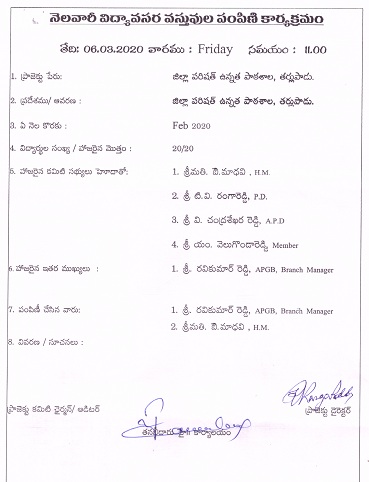 నెలవారీ విద్యావసర వస్తువుల పంపిణి కార్యక్రమం
తేది: 06.03.2020 వారము : Friday సమయం : 11.00
1. ప్రాజెక్టు పేరు: జిల్లా పరిషత్ ఉన్నత పాఠశాల, తర్లుపాడు.
2. ప్రదేశము/ ఆవరణ : జిల్లా పరిషత్ ఉన్నత పాఠశాల, తర్లుపాడు.
3. ఏ నెల కొరకు : Feb 2020
4. విద్యార్థుల సంఖ్య / హాజరైన మొత్తం : 20/20
5. హాజరైన కమిటి సభ్యులు హోదాతో: 1. శ్రీమతి. ఐ.మాధవి , H.M.
2. శ్రీ టి.వి. రంగారెడ్డి, P.D.
3. శ్రీ వి. చంద్రశేఖర రెడ్డి, A.P.D
4. శ్రీ యం. వెలుగొండారెడ్డి, Member
6.హాజరైన ఇతర ముఖ్యులు : 1. శ్రీ. రవికుమార్ రెడ్డి, APGB, Branch Manager
7. పంపిణీ చేసిన వారు: 1. శ్రీ. రవికుమార్ రెడ్డి, APGB, Branch Manager
2. శ్రీమతి. ఐ.మాధవి , H.M.
8. వివరణ / సూచనలు :
ప్రాజెక్టు కమిటి ఛైర్మన్/ ఆడిటర్ ప్రాజెక్టు డైరెక్టర్